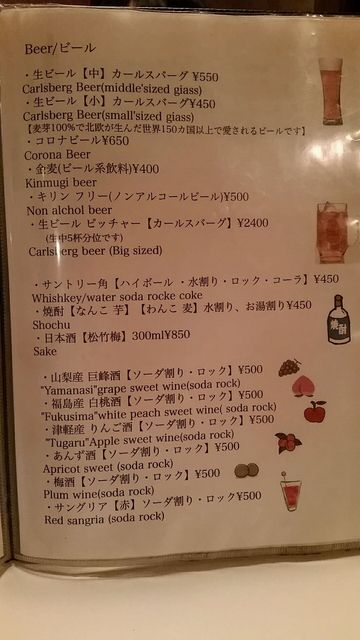 Beer/ビール
・生ビール【中】カールスバーグ ¥550
Carlsberg Beer(middle'sized giass)
・生ビール【小】カールスバーグ¥450
Carlsberg Beer(small'sized giass)
【麦芽100%で北欧が生んだ世界150カ国以上で愛されるビールです】
・コロナビール¥650
Corona Beer
・金麦(ビール系飲料)¥400
Kinmugi beer
・キリン フリー(ノンアルコールビール)¥500
Non alchol beer
・生ビール ピッチャー【カールスバーグ】¥2400
(生中5杯分位です)
Carlsberg beer (Big sized)
・サントリー角【ハイボール ・水割り・ロック・コーラ】¥450
Whishkey/water soda rocke coke
・焼酎【なんこ 芋】【わんこ 麦】水割り、お湯割り¥450
Shochu
・日本酒【松竹梅】300ml¥850
Sake
焼酎
・山梨産 巨峰酒【ソーダ割り・ロック】¥500
"Yamanasi"grape sweet wine(soda rock)
・福島産 白桃酒【ソーダ割り・ロック】¥500
"Fukusima"white peach sweet wine( soda rock)
・津軽産 りんご酒【ソーダ割り・ロック】¥500
"Tugaru"Apple sweet wine(soda rock)
・あんず酒【ソーダ割り・ロック】¥500
Apricot sweet (soda rock)
・梅酒【ソーダ割り・ロック】¥500
Plum wine(soda rock)
・サングリア【赤】ソーダ割り・ロック¥500
Red sangria (soda rock)